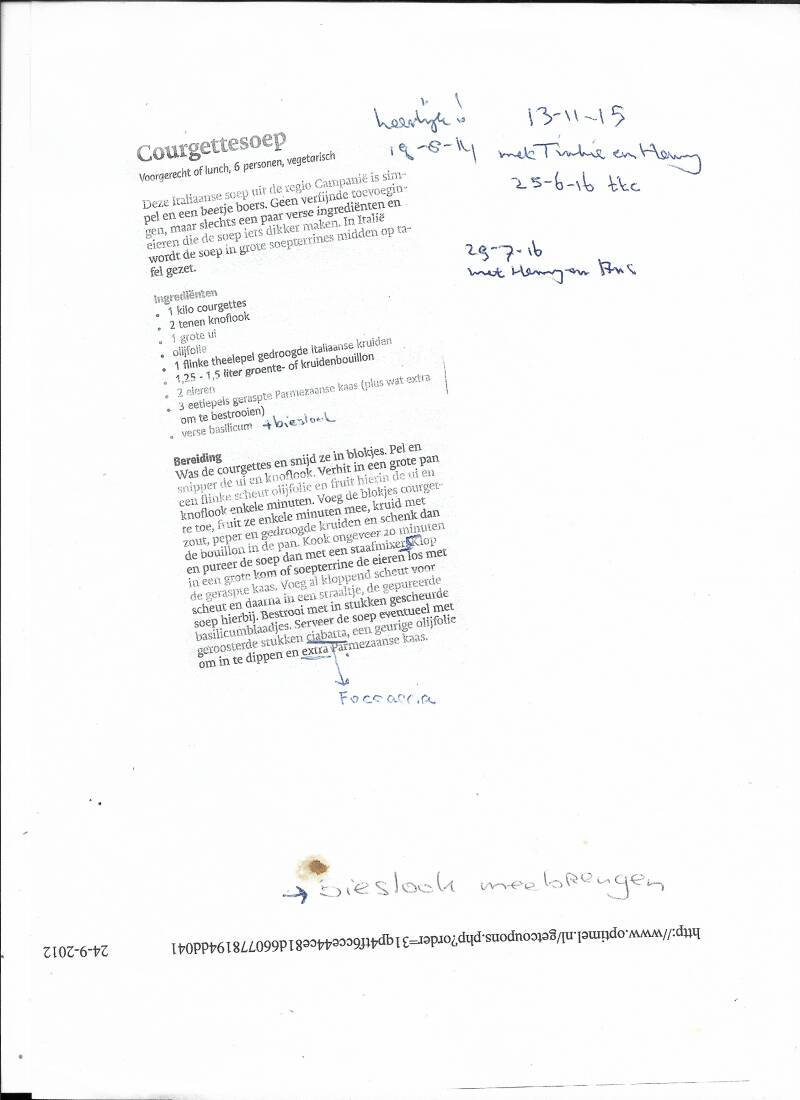 heerlijk!
19-6-14
13-11-15
met Tinkie en Henny
25-6-16 tkc
29-7-16
met Henny en Ans
Courgettesoep
Voorgerecht of lunch, 6 personen, vegetarisch
Deze Italiaanse soep uit de regio Campanië is sim-
pel en een beetje boers. Geen verfijnde toevoegin-
gen, maar slechts een paar verse ingrediënten en
eieren die de soep iers dikker maken. In Italië
wordt de soep in grote soepterrines midden op ta-
fel gezet.
Ingrediënten
• 1 kilo courgettes
• 2 tenen knoflook
• 1 grote ui
• olijfolie
• 1 flinke theelepel gedroogde italiaanse kruiden
• 1,25 - 1,5 liter groente- of kruidenbouillon
• 2 eieren
• 3 eetlepels geraspte Parmezaanse kaas (plus wat extra
om te bestrooien)
• verse basilicum + bieslook
Bereiding
Was de courgettes en snijd ze in blokjes. Pel en
snipper de ui en knoflook. Verhit in een grote pan
een flinke scheut olijfolie en fruit hierin de ui en
knoflook enkele minuten. Voeg de blokjes courget-
te toe, fruit ze enkele minuten mee, kruid met
zout, peper en gedroogde kruiden en schenk dan
de bouillon in de pan. Kook ongeveer 20 minuten
en pureer de soep dan met een staafmixer. Klop
in een grote kom of soepterrine de eieren los met
de geraspte kaas. Voeg al kloppend scheut voor
scheut en daarna in een straaltje, de gepureerde
soep hierbij. Bestrooi met in stukken gescheurde
basilicumblaadjes. Serveer de soep eventueel met
geroosterde stukken ciabatta, een geurige olijfolie
om in te dippen en extra Parmezaanse kaas.
Foccaccia
→ bieslook meebrengen
http://www.optimel.nl/getcoupons.php?order=31qp4tf6cce44ce81d660778194dd041
24-9-2012